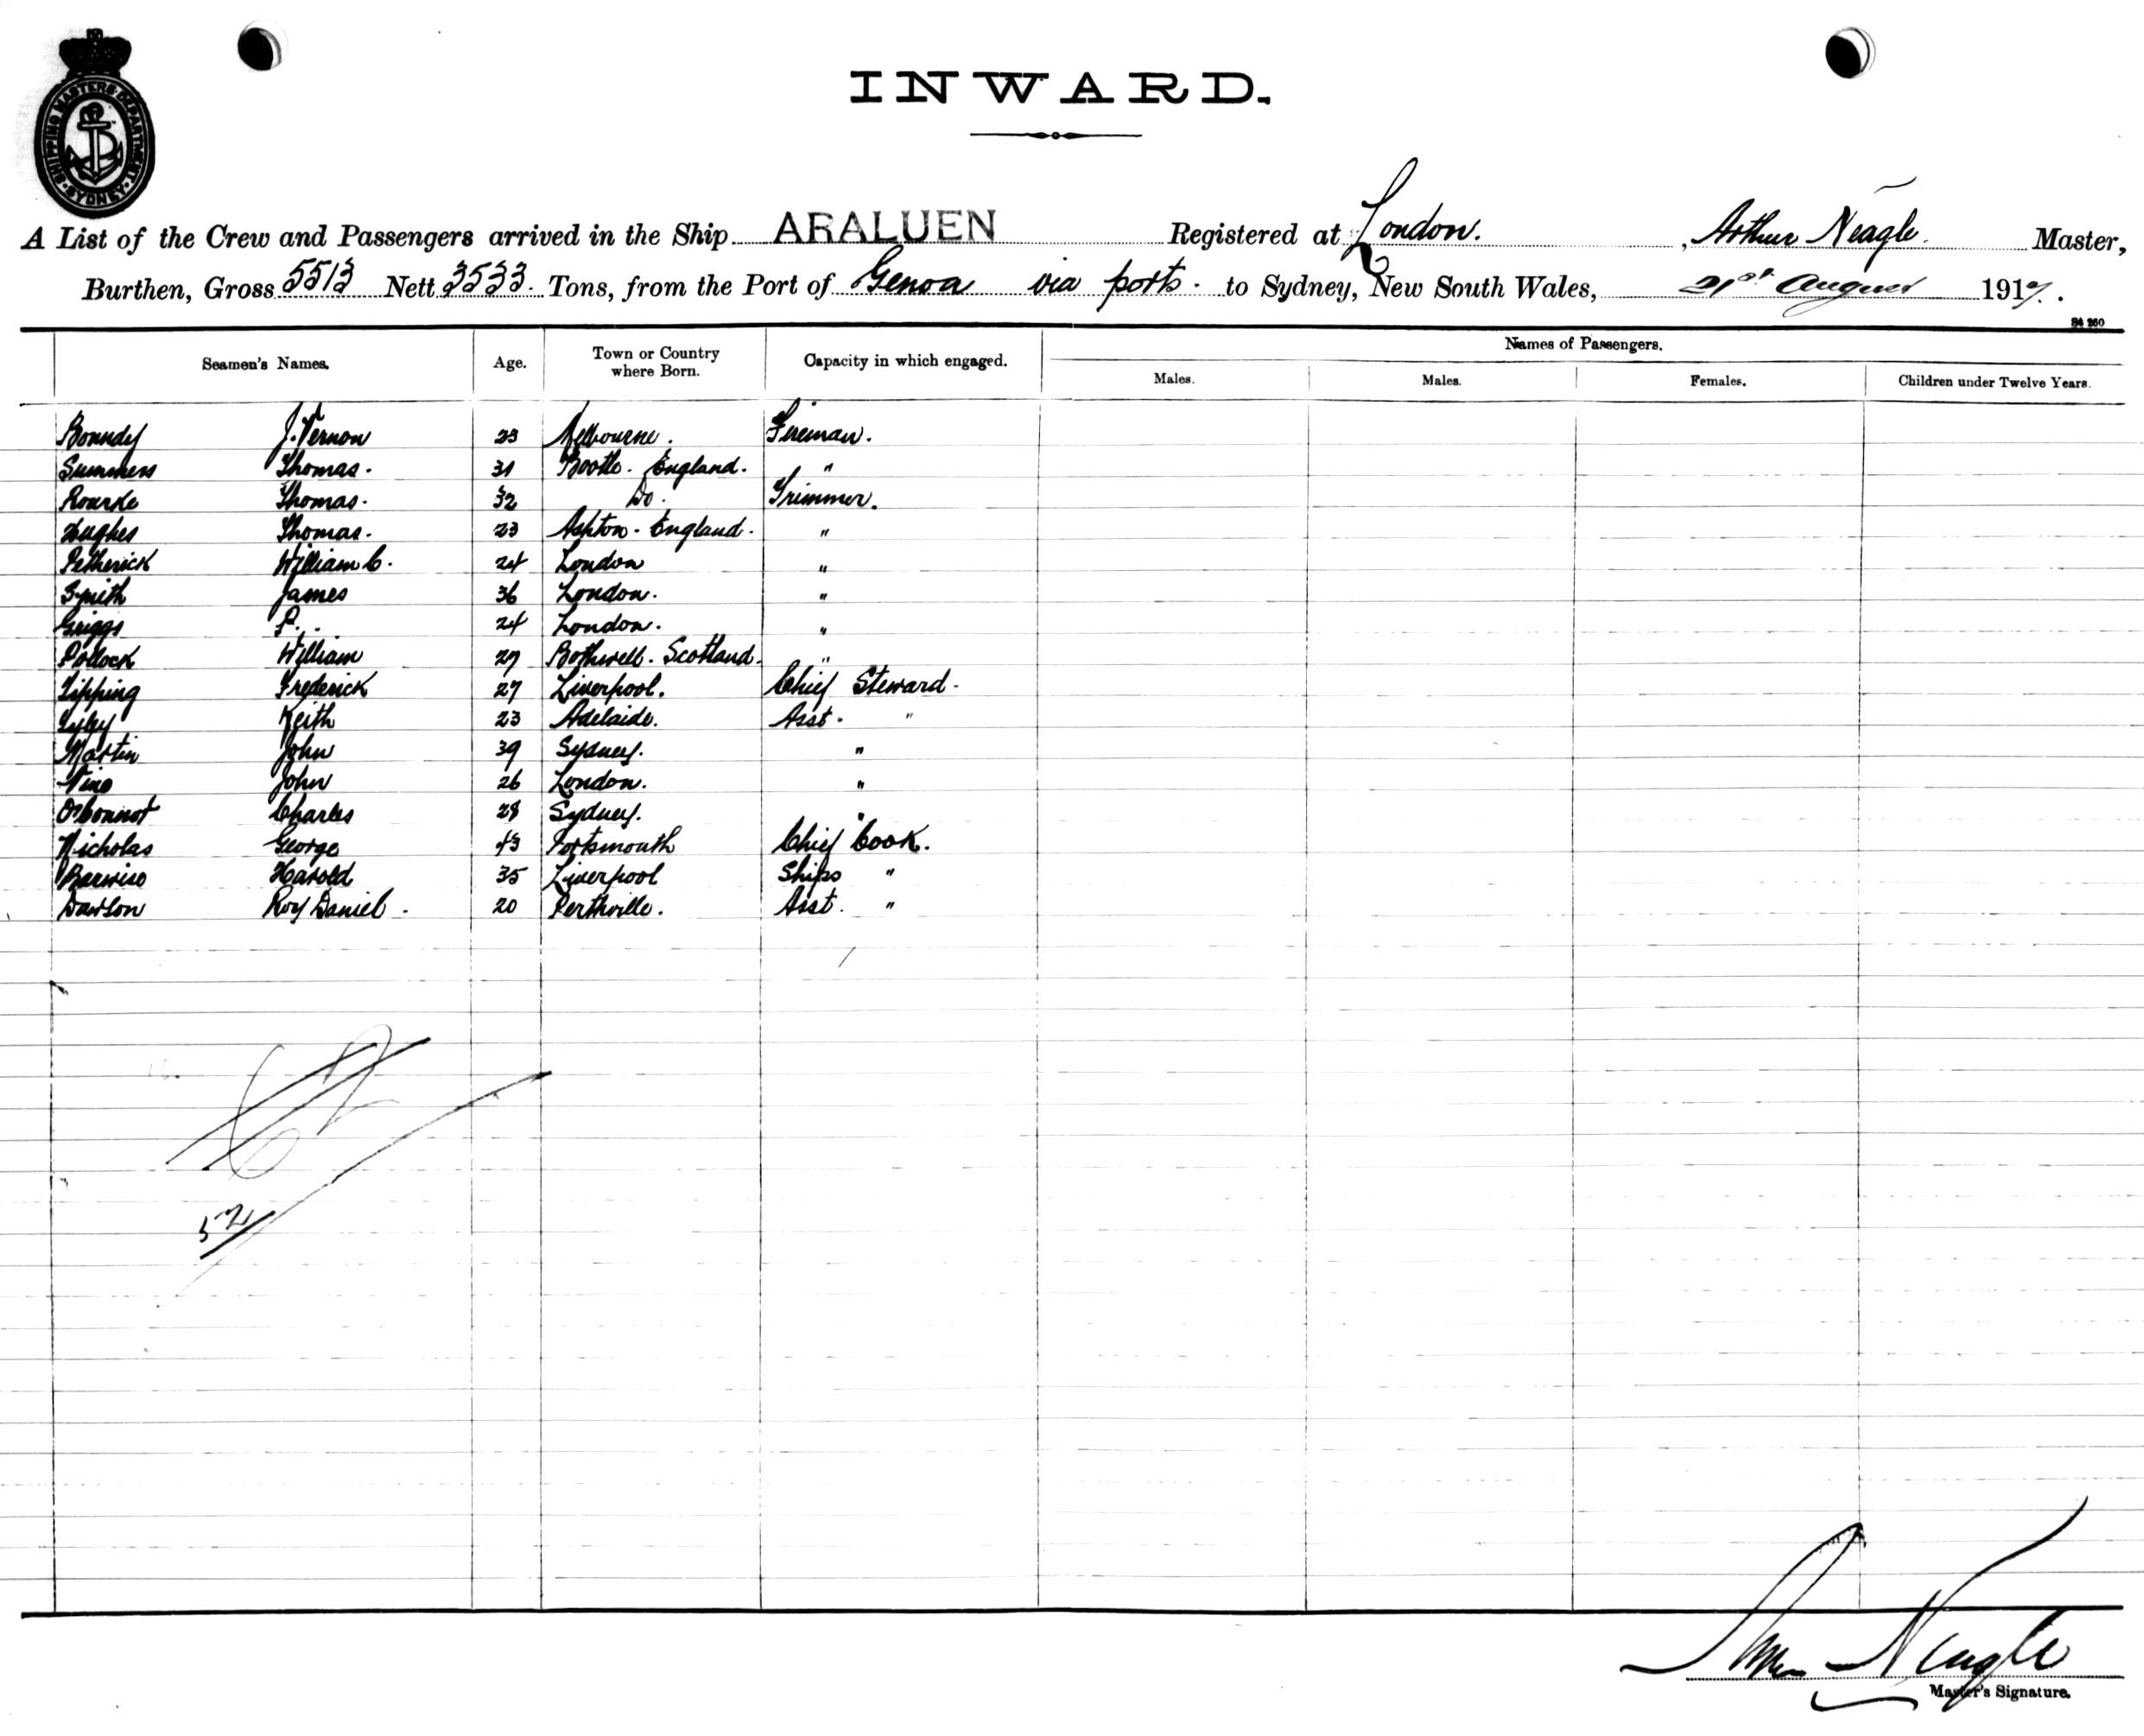 SHIPPING MASTERS DEPARTMENT SYDNEY
INWARD.
A List of the Crew and Passengers arrived in the Ship ARALUEN Registered at London. , Arthur Neagle. Master,
Burthen, Gross 5513 Nett 3533. Tons, from the Port of Genoa via ports. to Sydney, New South Wales, 21st August 1917.
Seamen's Names. Age. Town or Country where Born. Capacity in which engaged. Names of Passengers.
Males. Males. Females. Children under Twelve Years.
J. Vernon 23 Melbourne. Fireman.
Summers Thomas. 31 Bootle. England. "
Rourke Thomas. 32 Do. Trimmer.
Hughes Thomas. 23 Ashton. England. "
Petherick William C. 24 London "
Smith James 36 London. "
Griggs P. 24 London. "
Pollock William 27 Bothwell. Scotland. "
Tipping Frederick 27 Liverpool. Chief Steward.
Keith 23 Adelaide. Asst. "
Martin John 39 Sydney. "
John 26 London. "
O'Connor Charles 28 Sydney. "
Nicholas George 43 Portsmouth Chief Cook.
Barwise Harold 35 Liverpool Ships "
Dawson Roy Daniel. 20 Perthville. Asst. "
52
Master's Signature.